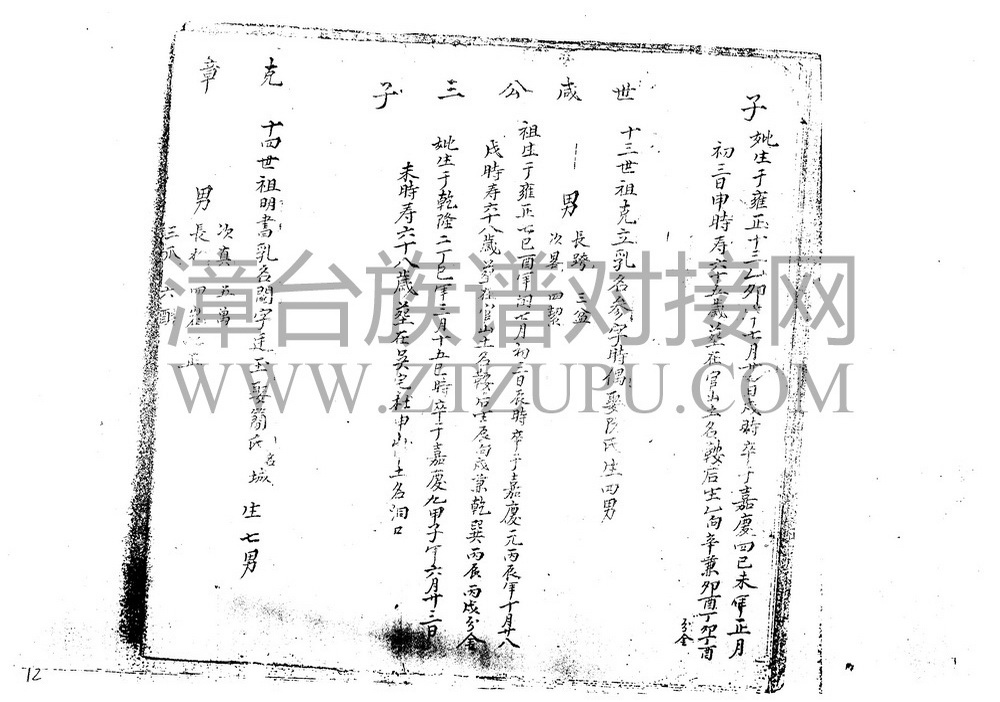 子
妣生于雍正十三乙卯年七月廿 日戌時卒于嘉慶四己未年正月
初三日申時寿六十五歲葬在官山土名鞍后坐乙向辛兼卯酉丁卯丁酉
分金
世咸公三子
十三世祖克立乳名参字時偶娶 氏生四男
一男
長 三盆
次 四契
祖生于雍正七己酉年閏七月初三日辰時卒于嘉慶元丙辰年十月廿八
戌時寿六十八歲葬在官山土名鞍后坐辰向戌兼乾巽丙辰丙戌分金
妣生于乾隆二丁巳年三月十五巳時卒于嘉慶九甲子年六月廿三日
未時寿六十八歲葬在吴宅社中山土名洞口
克章
十四世祖明書乳名闊字廷玉娶簡氏名城 生七男
男
次真 五萬
長 四
三 六
漳台族谱对接网
WWW.ZTZUPU.COM
12